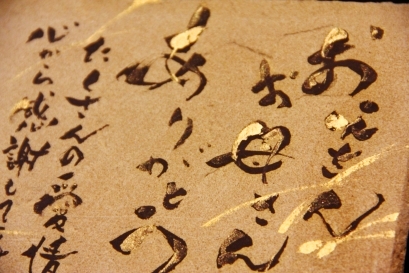 お父さん
お母さん
ありがとう
たくさんの愛情
心から感謝して